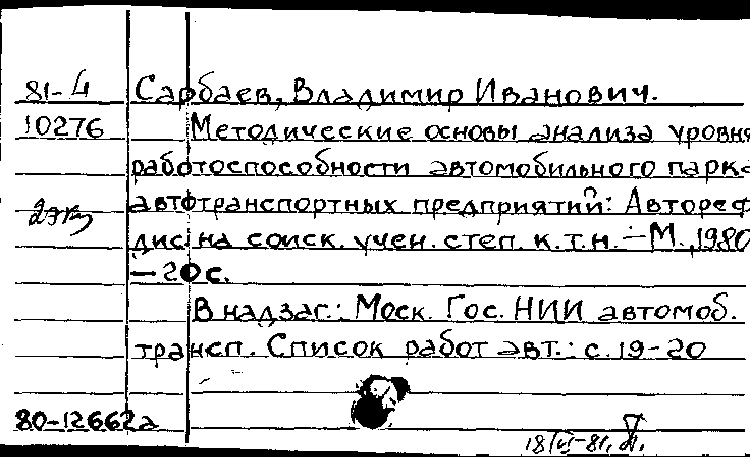 81-4 Сарбаев, Владимир Иванович.
10276 Методические основы анализа уровня
работоспособности автомобильного парка
2экз автотранспортных предприятий: Автореф
дис. на соиск. учен. степ. к.т.н. - М., 1980
- 20 с.
В надзаг.: Моск. Гос. НИИ автомоб.
трансп. Список работ авт.: с. 19-20
80-12662а
18/VI-81.